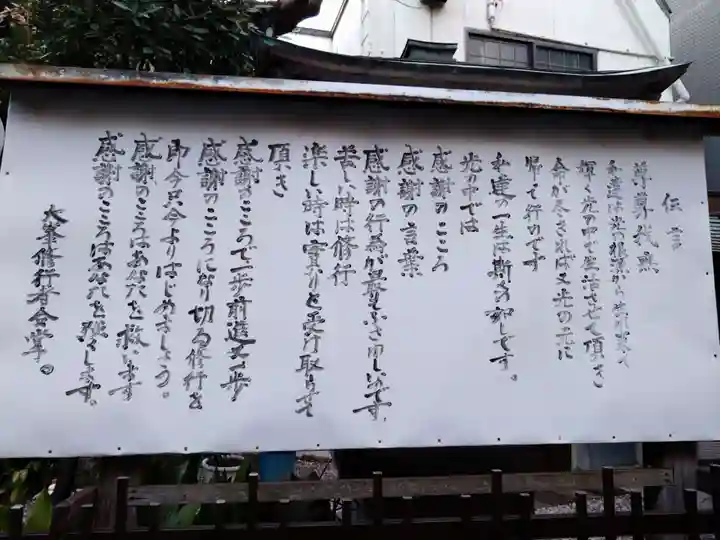 伝言
尊尊我無
私達は光の
輝く光の中で生活させて頂き
命が尽きれば又光の元に
帰って行のです
私達の一生は斯きの如しです。
光の中では
感謝のこころ
感謝の言葉
感謝の行為が最もふさわしいのです。
苦しい時は修行
楽しい時は実りと受け取らせて
頂き
感謝のこころで一歩前進又一歩
感謝のこころになり切る修行を
即今只今よりはじめましょう。
感謝のこころはあなたを救います
感謝のこころはあなたを強くします。
大峯修行者合掌。